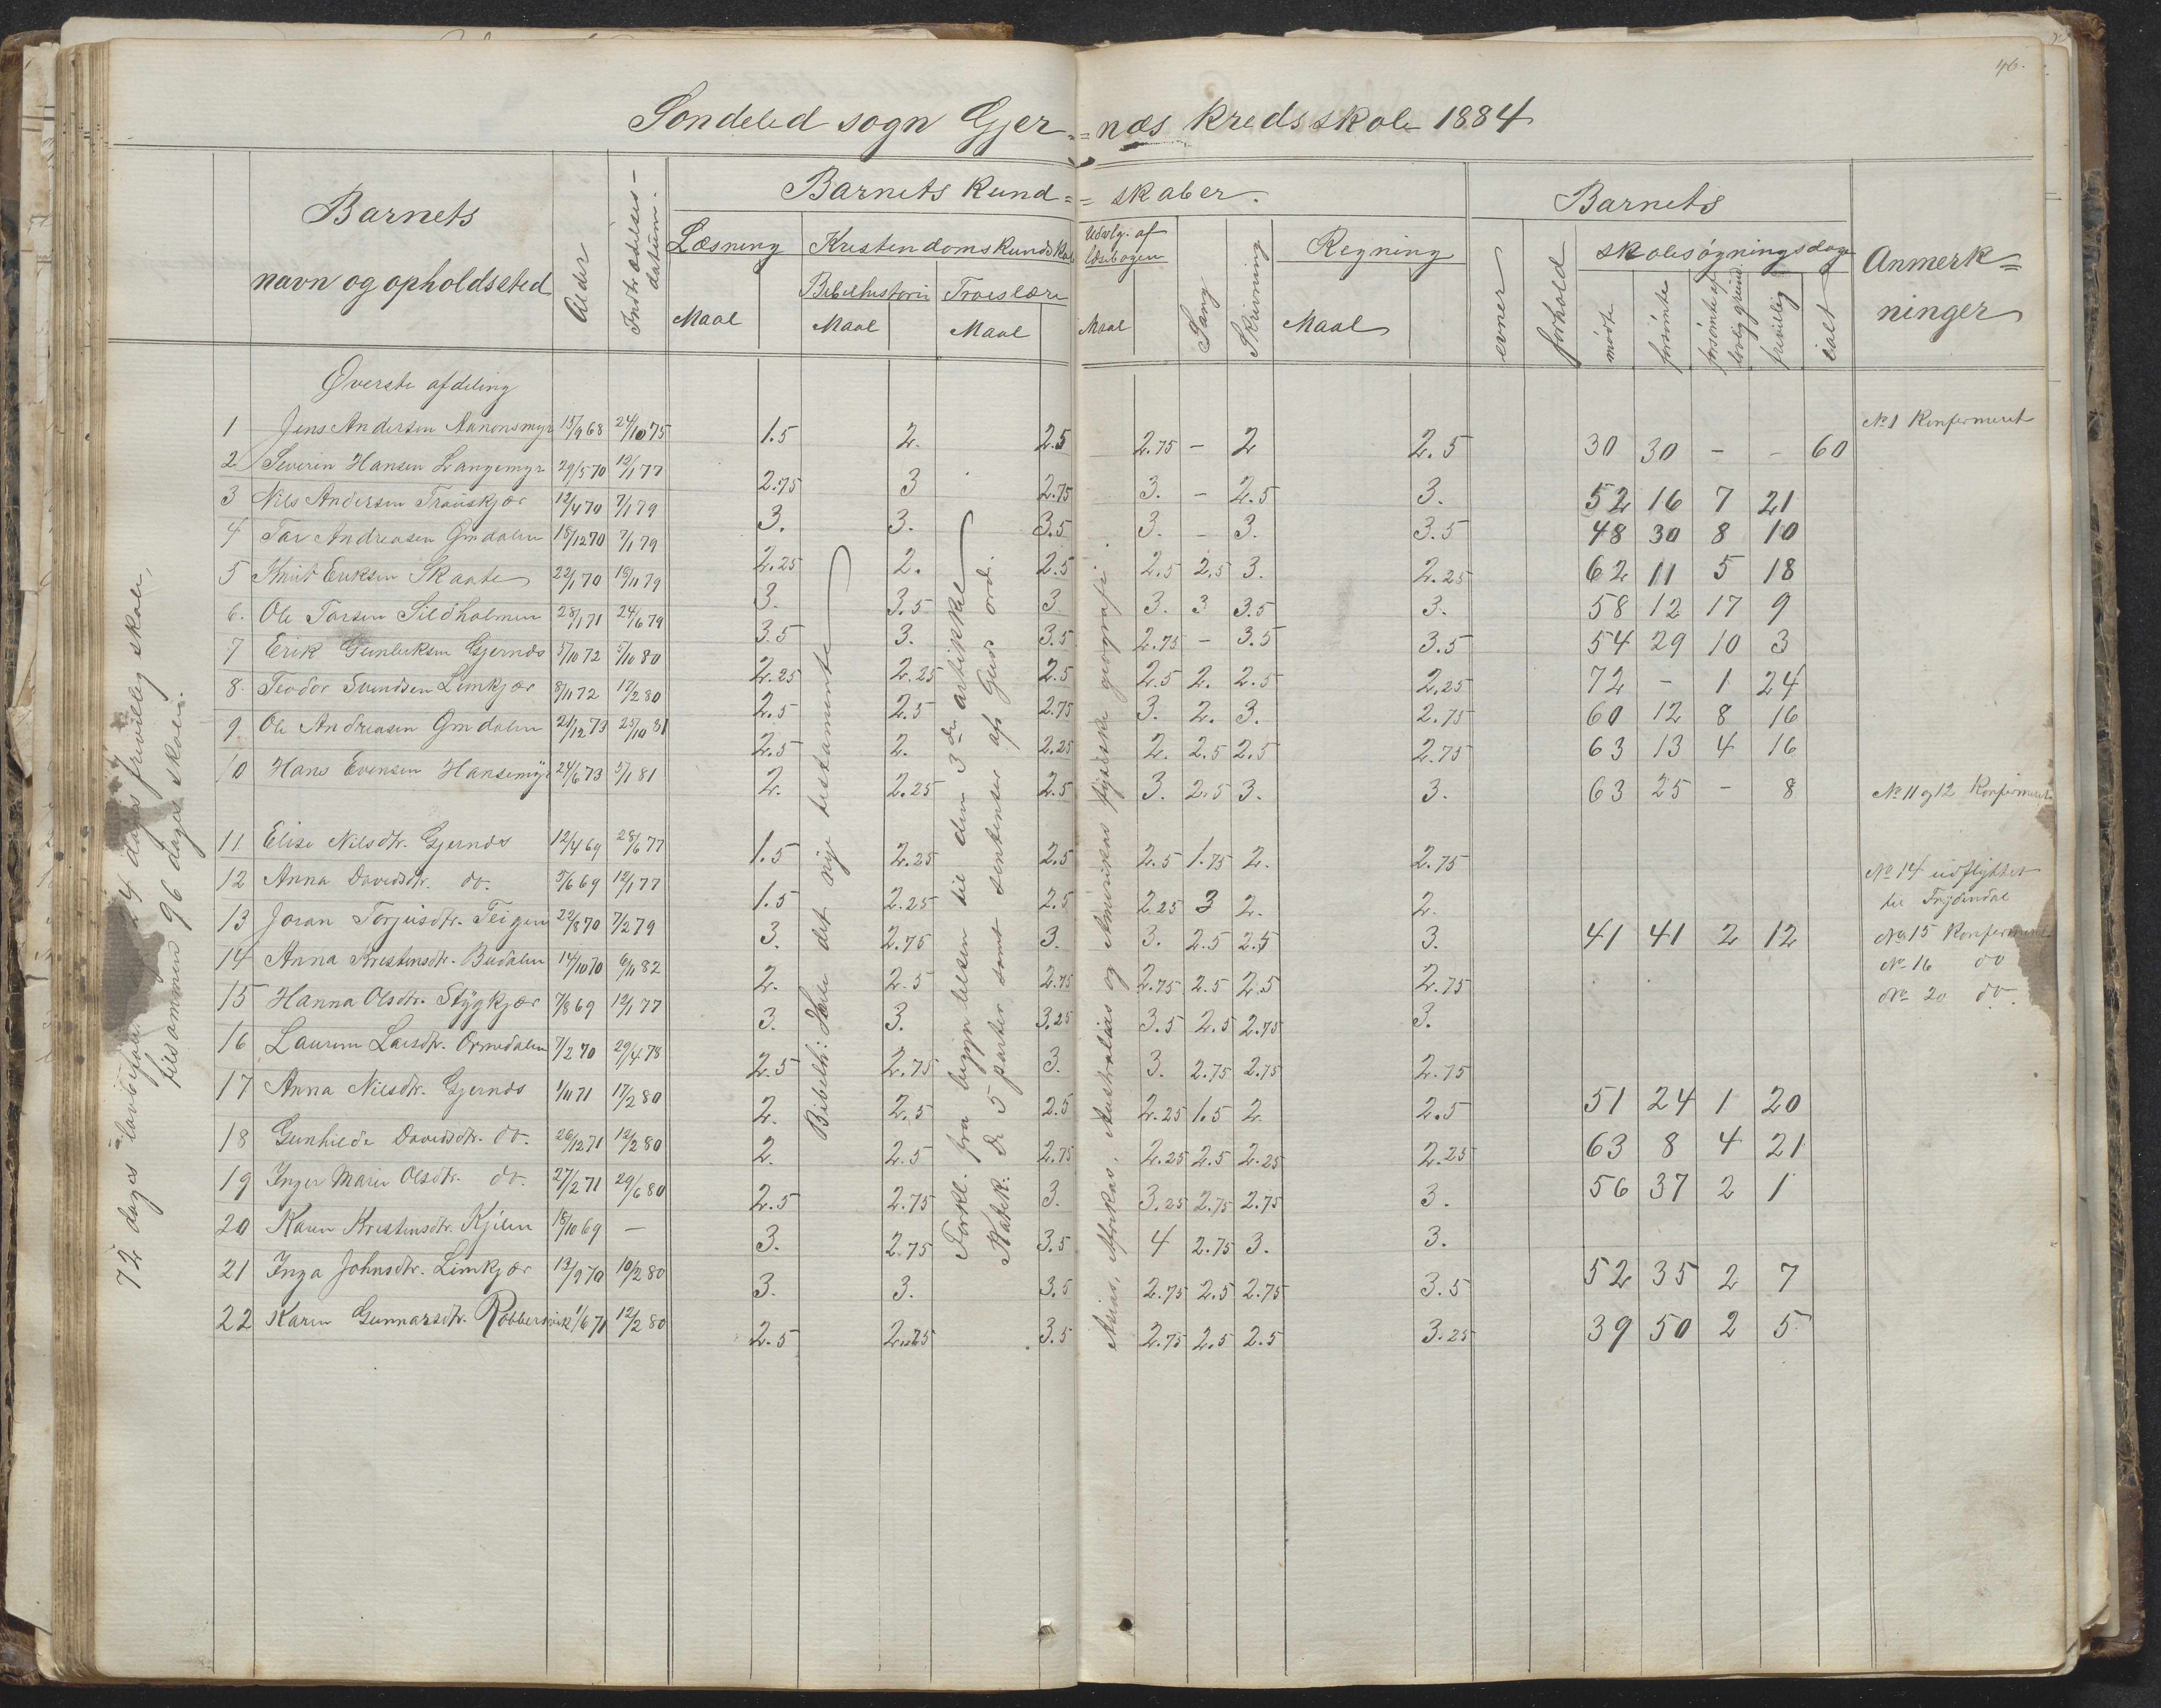 46.
Søndeled sogn Gjer-=næs kredsskole 1884
Barnets navn og opholdssted
Alder
Indtrædelses-datum.
Barnets kund-=skaber.
Læsning
Maal
Kristendomskundskab
Bibelhistorie
Maal
Troeslære
Maal
Udvalg. af læsebogen
Maal
Sang
Skrivning
Regning
Maal
Barnets
evner
forhold
skolesøgningsdage
mødte
forsømte
forsømte af lovlig grund
frivillig
ialt
Anmerk=ninger
Øverste afdeling
1 Jens Andersen Nanonsmyr 13/9 68 24/10 75 1.5 2. 2.5 2.75 - 2 2.5 30 30 - - 60
2 Severin Hansen Langemyr 29/5 70 12/1 77 2.75 3 2.75 3. - 2.5 3. 52 16 7 21
3 Nils Andersen Trauskjær 12/4 70 7/1 79 3. 3. 3.5 3. - 3. 3.5 48 30 8 10
4 Tar Andreasen Gmdalen 18/12 70 7/1 79 2.25 2. 2.5 2.5 2.5 3. 2.25 62 11 5 18
5 Knut Eriksen Skaate 22/1 70 18/11 79 3. 3.5 3 3. 3 3.5 3. 58 12 17 9
6. Ole Tarsen Sildholmen 28/1 71 24/6 79 3.5 3. 3.5 2.75 - 3.5 3.5 54 29 10 3
7 Erik Gunluksen Gjernæs 5/10 72 5/10 80 2.25 2.25 2.5 2.5 2. 2.5 2.25 72 - 1 24
8. Teodor Svendsen Limkjær 8/11 72 12/2 80 2.5 2.5 2.75 3. 2. 3. 2.75 60 12 8 16
9. Ole Andreasen Gmdalen 21/12 73 25/10 81 2.5 2. 2.25 2. 2.5 2.5 2.75 63 13 4 16
10 Hans Evensen Hansemyr 24/6 73 5/1 81 2. 2.25 2.5 3. 2.5 3. 3. 63 25 - 8
11 Elise Nilsdtr. Gjernæs 12/4 69 28/6 77 1.5 2.25 2.5 2.5 1.75 2. 2.75
12 Anna Davidsdtr. do. 5/6 69 12/1 77 1.5 2.25 2.5 2.25 3 2. 2.
13 Joran Torjusdtr. Teigen 22/8 70 7/2 79 3. 2.75 3. 3. 2.5 2.5 3. 41 41 2 12
14 Anna Kristensdtr. Budalen 14/10 70 6/11 82 2. 2.5 2.75 2.75 2.5 2.5 2.75
15 Hanna Olsdtr. Stygkjær 7/8 69 12/1 77 3. 3. 3.25 3.5 2.5 2.75 3.
16 Laurine Larsdtr. Ormdalen 7/2 70 29/4 78 2.5 2.75 3. 3. 2.75 2.75 2.75
17 Anna Nilsdtr. Gjernæs 1/11 71 17/2 80 2. 2.5 2.5 2.25 1.5 2. 2.5 51 24 1 20
18 Gunhilde Davidsdtr. do. 26/12 71 12/2 80 2. 2.5 2.75 2.25 2.5 2.25 2.25 63 8 4 21
19 Inger Marie Olsdtr. do. 27/2 71 29/6 80 2.5 2.75 3. 3.25 2.75 2.75 3. 56 37 2 1
20 Karen Kristensdtr. Kjilen 18/10 69 - 3. 2.75 3.5 4 2.75 3. 3.
21 Inga Johnsdtr. Limkjær 13/9 70 10/2 80 3. 3. 3.5 2.75 2.5 2.75 3.5 52 35 2 7
22 Karen Gunnarsdtr. Robbersvik 1/6 71 12/2 80 2.5 2.75 3.5 2.75 2.5 2.5 3.25 39 50 2 5
Bibelh: Hele det nye testamente
Forkl. fra begyndelsen til den 3die artikkel
Katek. De 5 parter samt sentenser af Guds ord.
Asias, Afrikas, Australias og Amerikas fysiske geografi.
№1 Konfermeret
№ 11 og 12 Konfirmeret
№ 14 udflyttet
til Frydendal
№ 15 Konfermeret
№ 16 do
№ 20 do.
72 dages lovbefalet 24 dages frivillig skole,
tilsammen 96 dages skole.